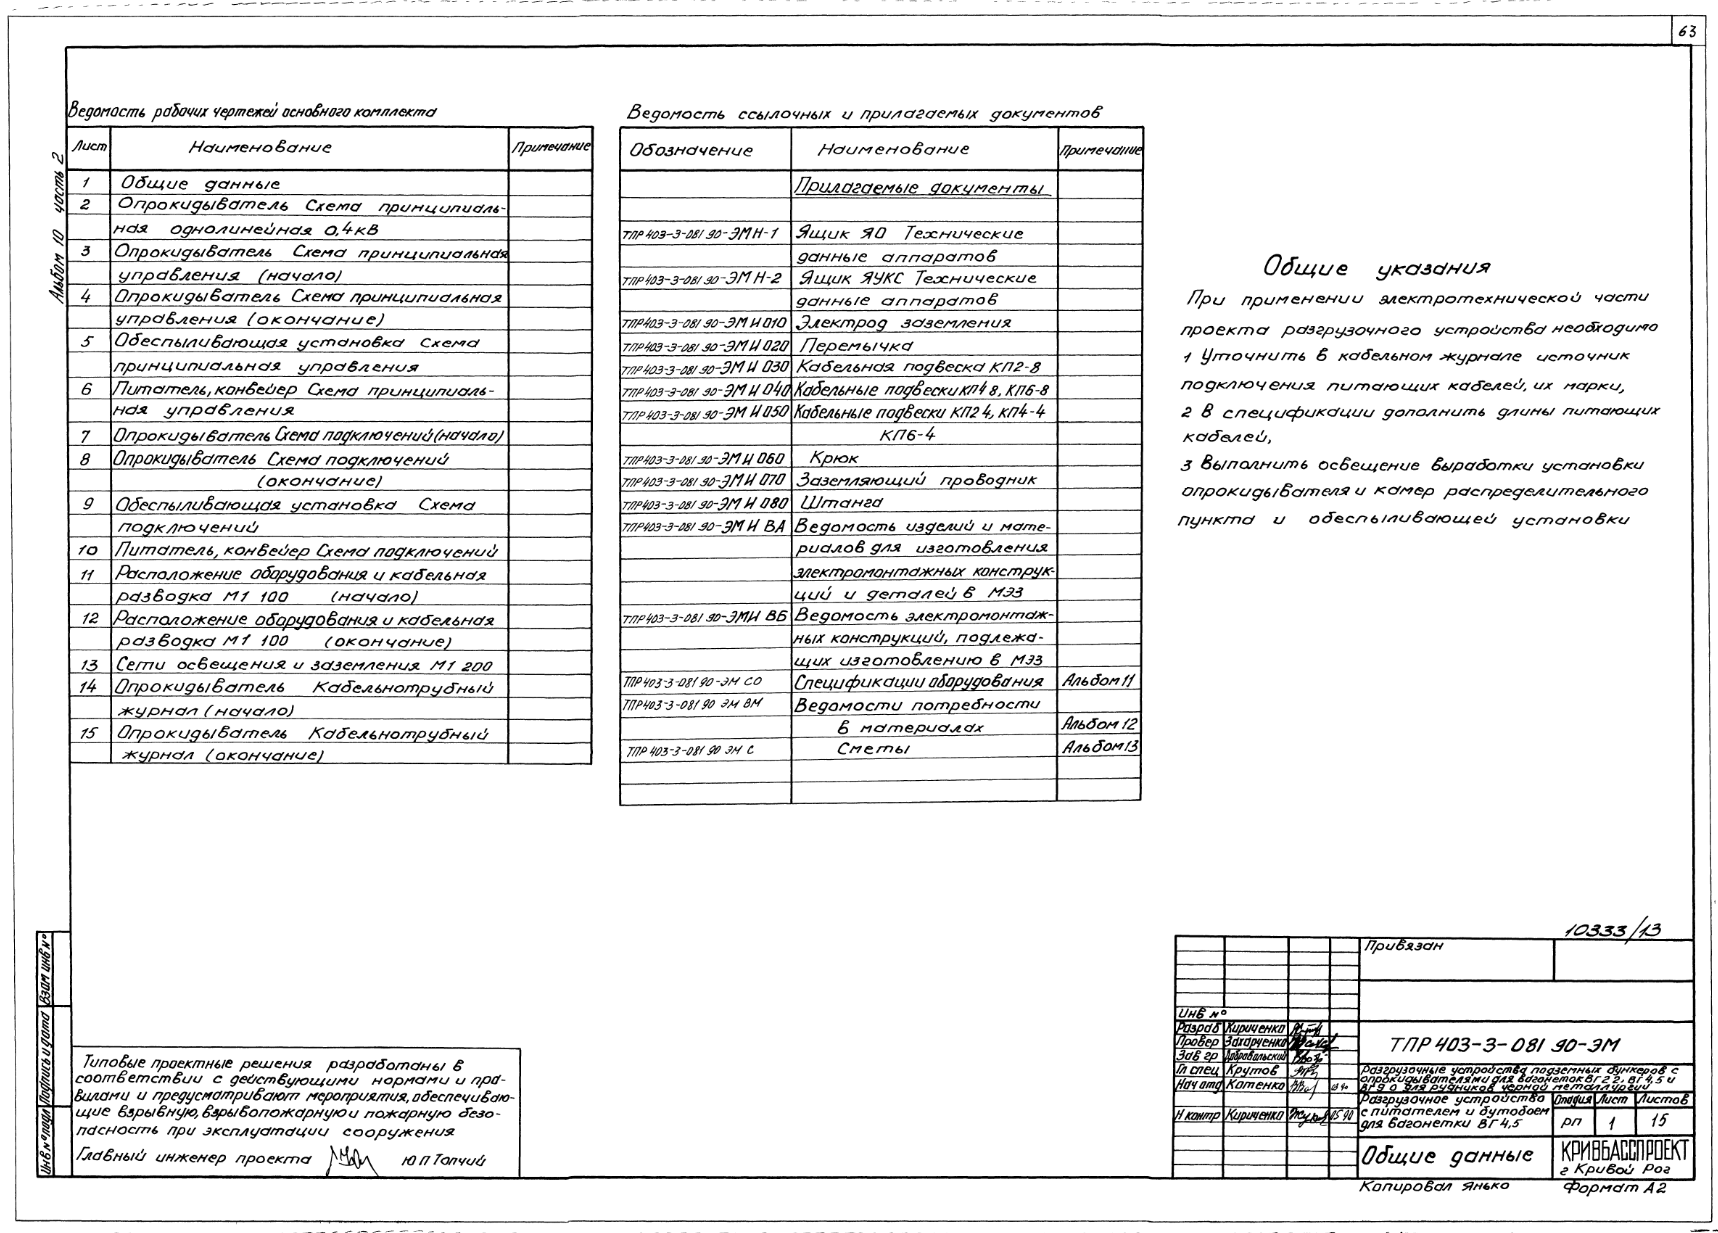 63
Альбом 10 часть 2
Ведомость рабочих чертежей основного комплекта
Лист Наименование Примечание
1 Общие данные
2 Опрокидыватель Схема принципиаль-
ная однолинейная 0,4кВ
3 Опрокидыватель Схема принципиальная
управления (начало)
4 Опрокидыватель Схема принципиальная
управления (окончание)
5 Обеспыливающая установка Схема
принципиальная управления
6 Питатель, конвейер Схема принципиаль-
ная управления
7 Опрокидыватель Схема подключений (начало)
8 Опрокидыватель Схема подключений
(окончание)
9 Обеспыливающая установка Схема
подключений
10 Питатель, конвейер Схема подключений
11 Расположение оборудования и кабельная
разводка М1 100 (начало)
12 Расположение оборудования и кабельная
разводка М1 100 (окончание)
13 Сети освещения и заземления М1 200
14 Опрокидыватель Кабельнотрубный
журнал (начало)
15 Опрокидыватель Кабельнотрубный
журнал (окончание)
Ведомость ссылочных и прилагаемых документов
Обозначение Наименование Примечание
Прилагаемые документы
ТПР 403-3-081 90-ЭМ Н-1 Ящик ЯО Технические
данные аппаратов
ТПР 403-3-081 90-ЭМ Н-2 Ящик ЯУКС Технические
данные аппаратов
ТПР 403-3-081 90-ЭМ И 010 Электрод заземления
ТПР 403-3-081 90-ЭМ И 020 Перемычка
ТПР 403-3-081 90-ЭМ И 030 Кабельная подвеска КП2-8
ТПР 403-3-081 90-ЭМ И 040 Кабельные подвески КП4 8, КП6-8
ТПР 403-3-081 90-ЭМ И 050 Кабельные подвески КП2 4, КП4-4
КП6-4
ТПР 403-3-081 90-ЭМ И 060 Крюк
ТПР 403-3-081 90-ЭМ И 070 Заземляющий проводник
ТПР 403-3-081 90-ЭМ И 080 Штанга
ТПР 403-3-081 90-ЭМ И ВА Ведомость изделий и мате-
риалов для изготовления
электромонтажных конструк-
ций и деталей в МЭЗ
ТПР 403-3-081 90-ЭМИ ВБ Ведомость электромонтаж-
ных конструкций, подлежа-
щих изготовлению в МЭЗ
ТПР 403-3-081 90-ЭМ СО Спецификации оборудования Альбом 11
ТПР 403-3-081 90 ЭМ ВМ Ведомости потребности
в материалах Альбом 12
ТПР 403-3-081 90 ЭМ С Сметы Альбом 13
Общие указания
При применении электротехнической части
проекта разгрузочного устройства необходимо
1 Уточнить в кабельном журнале источник
подключения питающих кабелей, их марки,
2 В спецификации дополнить длины питающих
кабелей,
3 Выполнить освещение выработки установки
опрокидывателя и камер распределительного
пункта и обеспыливающей установки
Инв № подл Подпись и дата Взам инв №
Типовые проектные решения разработаны в
соответствии с действующими нормами и пра-
вилами и предусматривают мероприятия, обеспечиваю-
щие взрывную, взрывопожарную и пожарную безо-
пасность при эксплуатации сооружения
Главный инженер проекта Ю П Топчий
10333/13
Привязан
Инв №
Разраб Кириченко
Провер Захарченко
Зав гр Добровольский
Гл спец Крутов
Нач отд Котенко
Н контр Кириченко 05 90
ТПР 403-3-081 90-ЭМ
Разгрузочные устройства подземных бункеров с
опрокидывателями для вагонеток ВГ 2 2, ВГ 4,5 и
ВГ 9 0 для рудников черной металлургии
Разгрузочное устройство
с питателем и бутобоем
для вагонетки ВГ 4,5
Стадия Лист Листов
рп 1 15
Общие данные
КРИВБАССПРОЕКТ
г Кривой Рог
Копировал Янько Формат А2